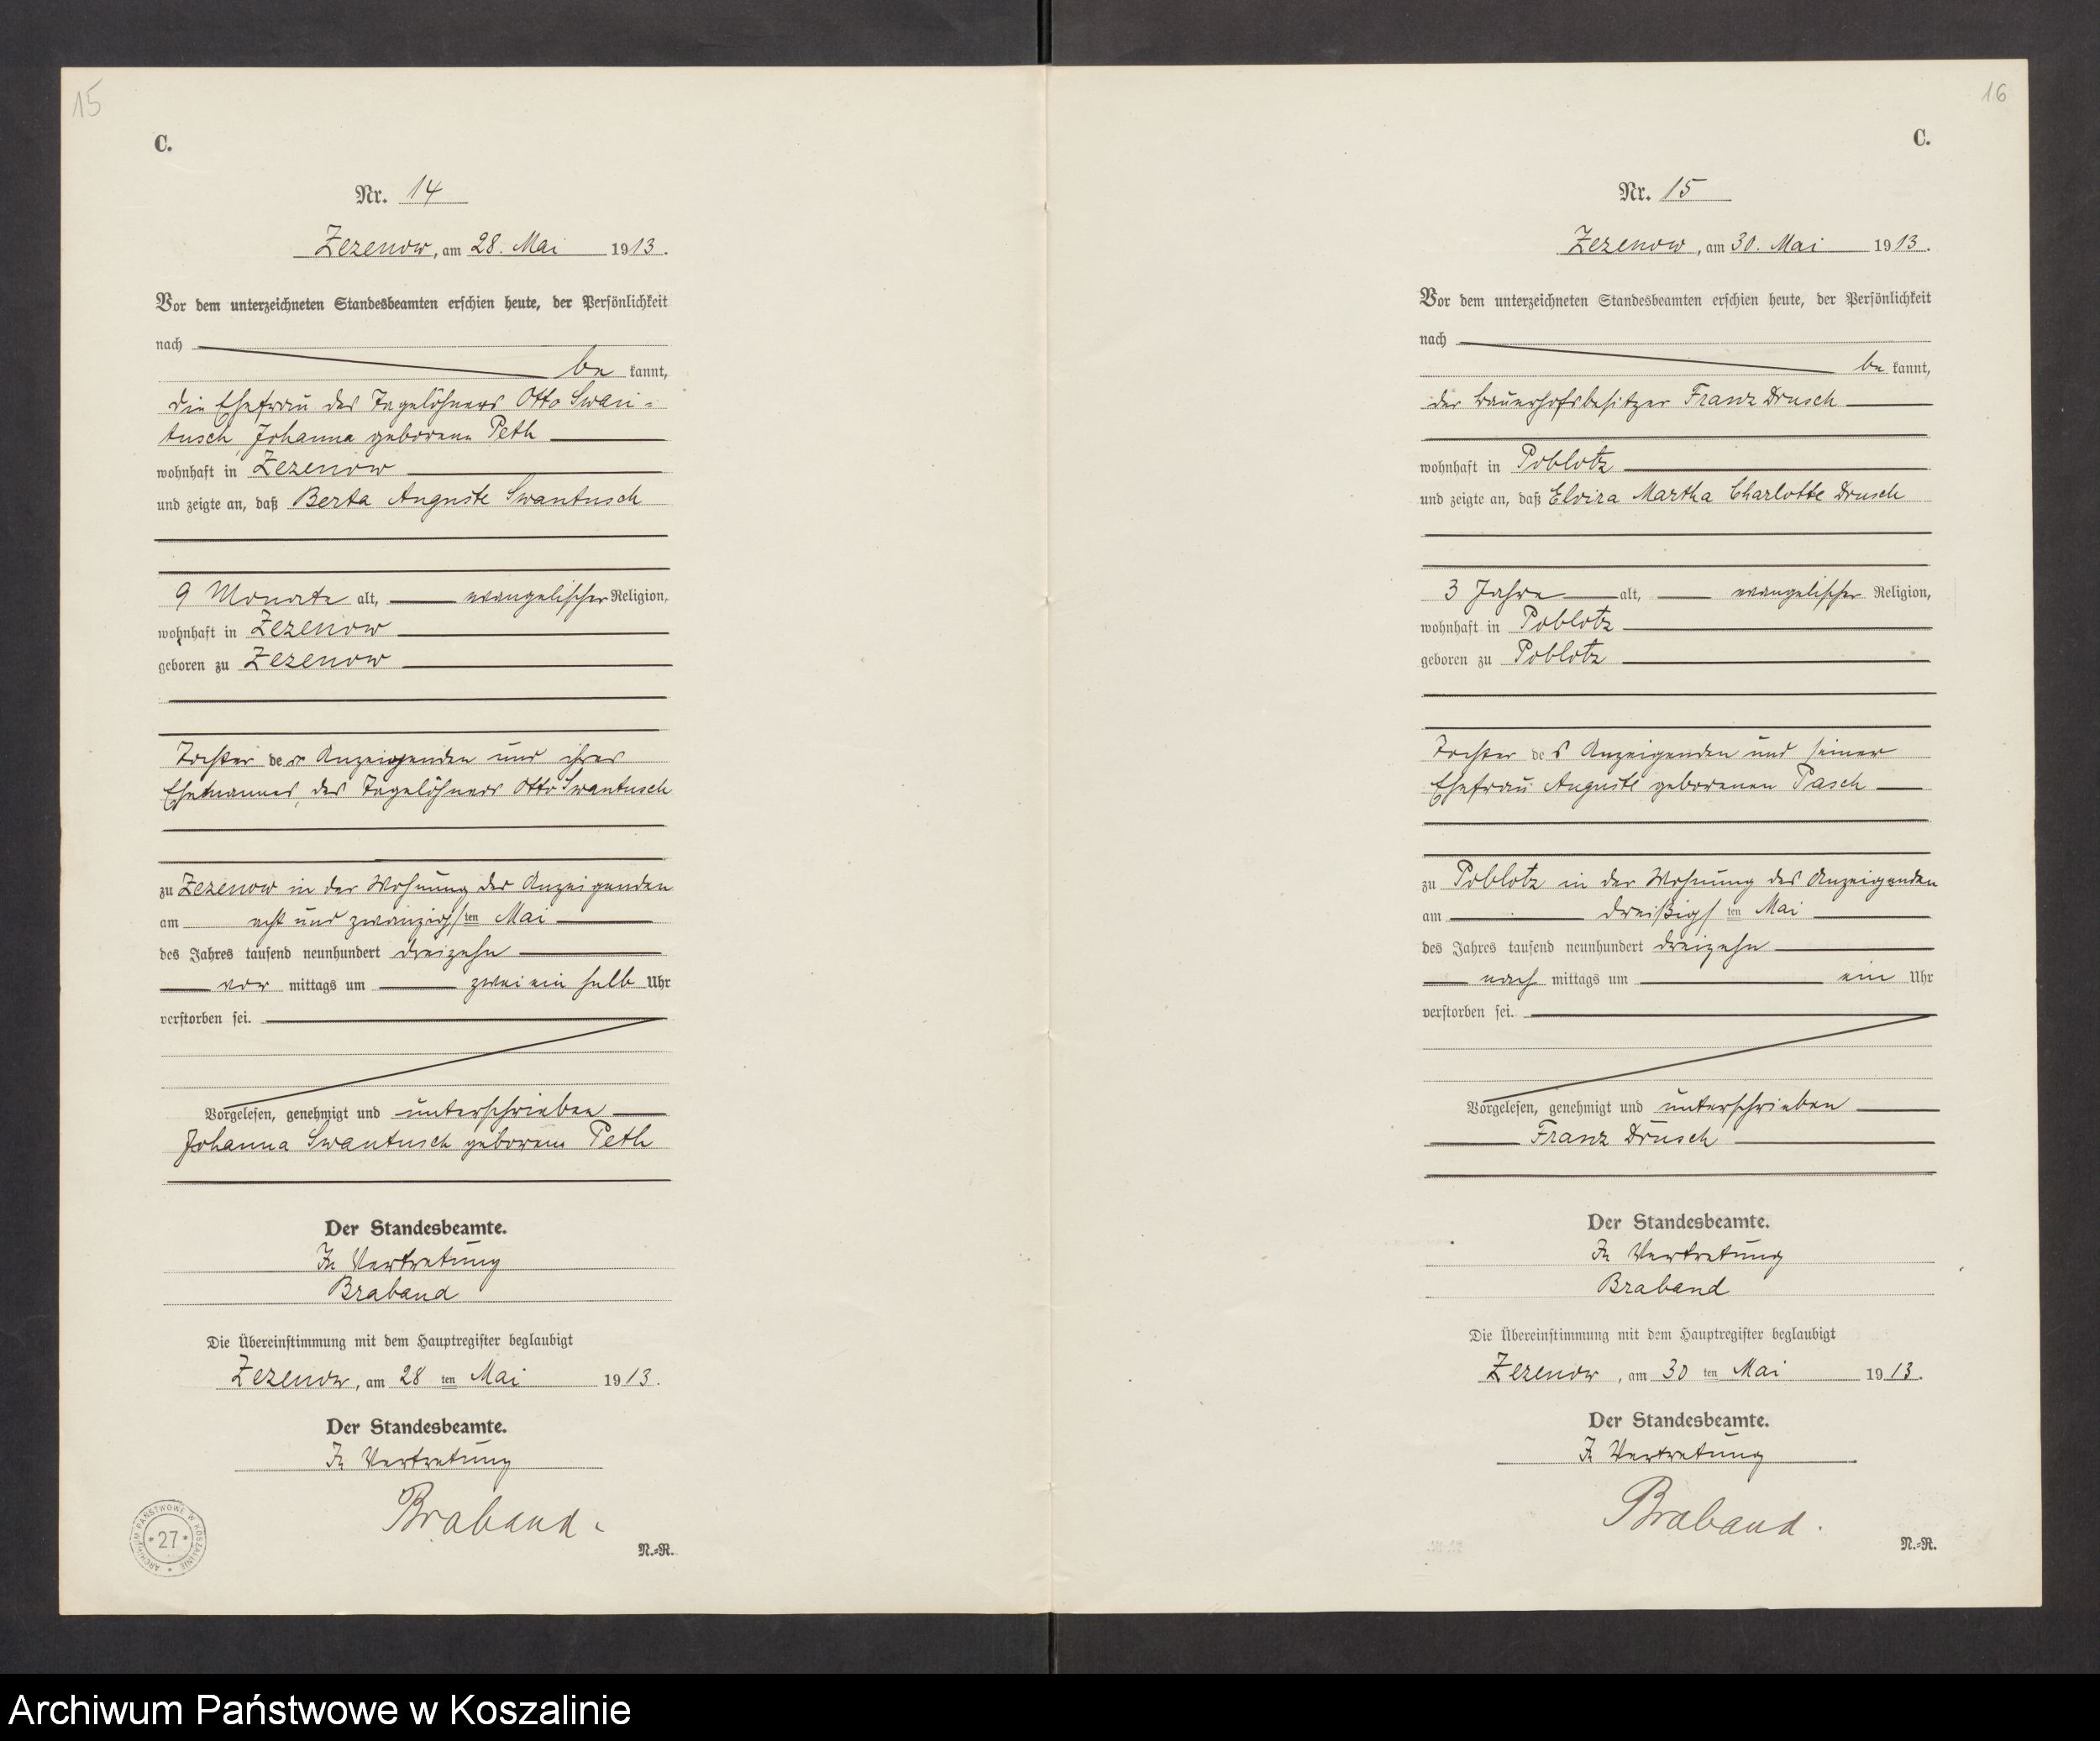 15
C.
Nr. 14
Zezenow, am 28. Mai 1913.
Vor dem unterzeichneten Standesbeamten erschien heute, der Persönlichkeit
nach
be kannt,
die Ehefrau des Tagelöhners Otto Swan-
tusch, Johanna geborene Peth
wohnhaft in Zezenow
und zeigte an, daß Berta Auguste Swantusch
9 Monate alt, evangelischer Religion,
wohnhaft in Zezenow
geboren zu Zezenow
Tochter der Anzeigenden und ihres
Ehemannes, des Tagelöhners Otto Swantusch
zu Zezenow in der Wohnung der Anzeigenden
am acht und zwanzigsten Mai
des Jahres tausend neunhundert dreizehn
vor mittags um zwei ein halb Uhr
verstorben sei.
Vorgelesen, genehmigt und unterschrieben
Johanna Swantusch geborene Peth
Der Standesbeamte.
In Vertretung
Braband
Die Übereinstimmung mit dem Hauptregister beglaubigt
Zezenow, am 28 ten Mai 1913.
Der Standesbeamte.
In Vertretung
Braband.
N.-R.
ARCHIWUM PAŃSTWOWE W KOSZALINIE
*27*
16
C.
Nr. 15
Zezenow, am 30. Mai 1913.
Vor dem unterzeichneten Standesbeamten erschien heute, der Persönlichkeit
nach
be kannt,
der Bauerhofsbesitzer Franz Drusch
wohnhaft in Poblotz
und zeigte an, daß Elvira Martha Charlotte Drusch
3 Jahre alt, evangelischer Religion,
wohnhaft in Poblotz
geboren zu Poblotz
Tochter des Anzeigenden und seiner
Ehefrau Auguste geborenen Pasch
zu Poblotz in der Wohnung des Anzeigenden
am dreißigsten Mai
des Jahres tausend neunhundert dreizehn
nach mittags um ein Uhr
verstorben sei.
Vorgelesen, genehmigt und unterschrieben
Franz Drusch
Der Standesbeamte.
In Vertretung
Braband
Die Übereinstimmung mit dem Hauptregister beglaubigt
Zezenow, am 30 ten Mai 1913.
Der Standesbeamte.
In Vertretung
Braband.
N.-R.
Archiwum Państwowe w Koszalinie